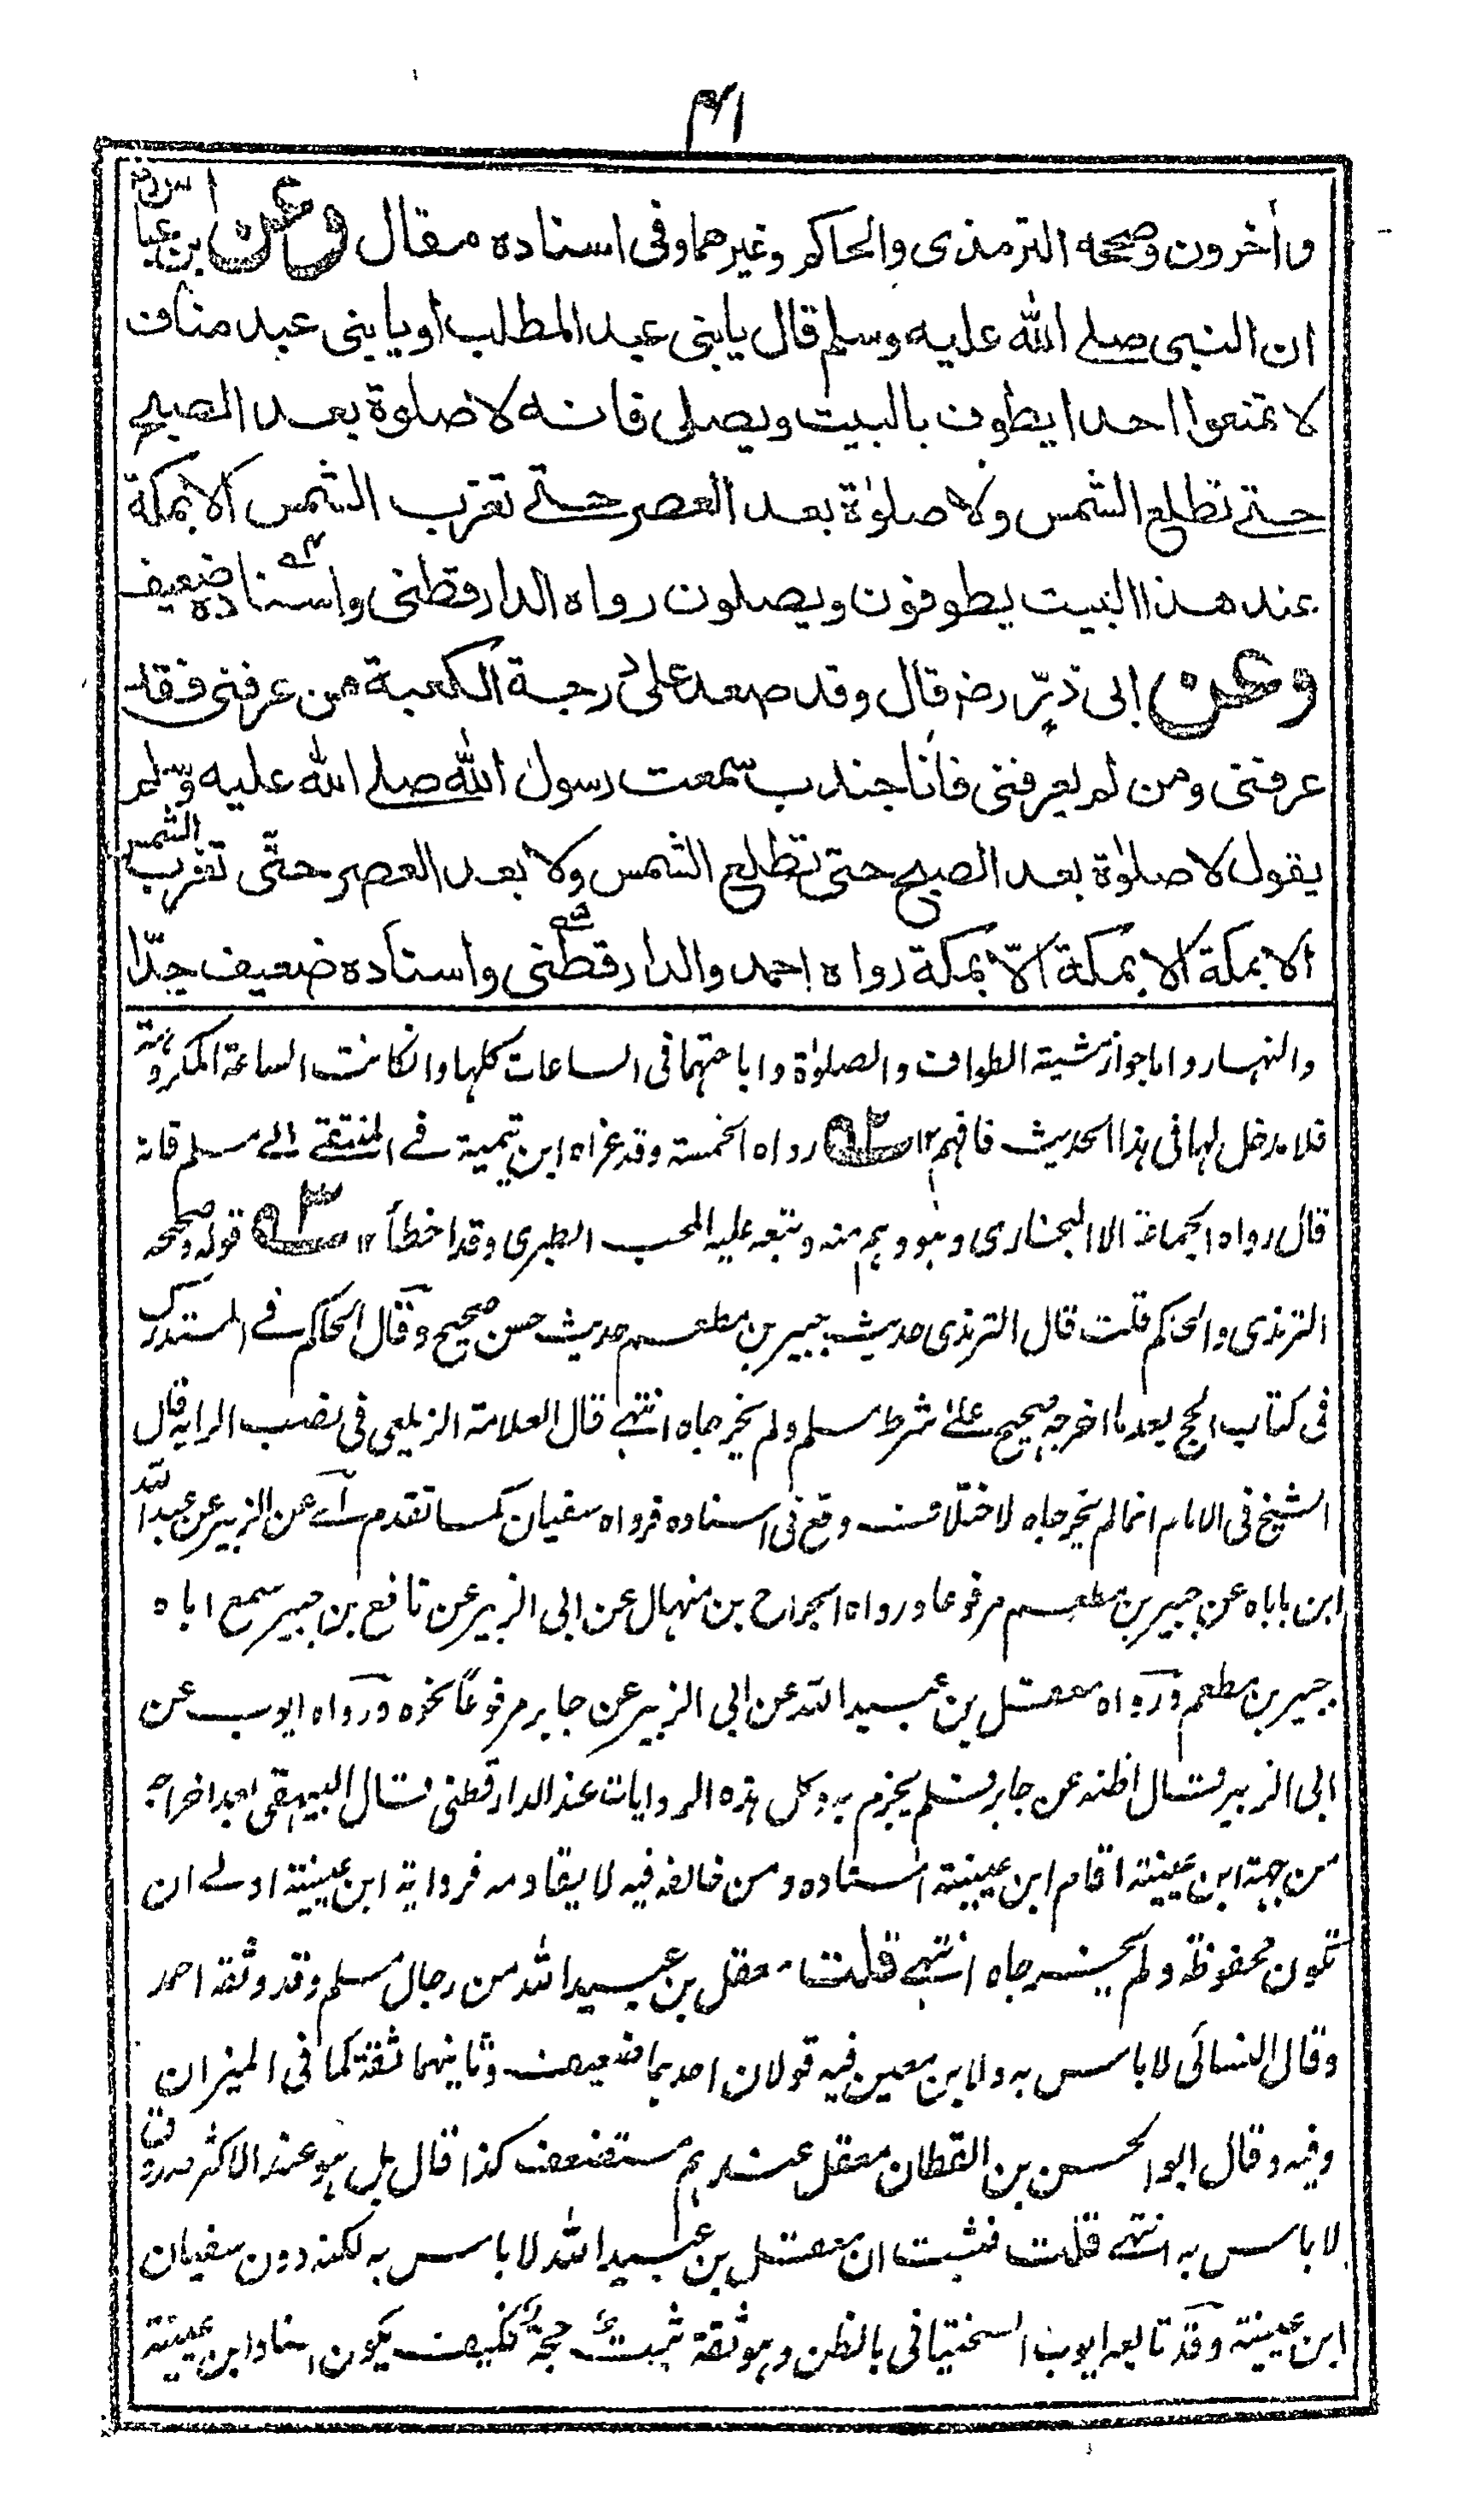 ١٨١
وأخرون وصححه الترمذى والحاكم وغيرهما وفى اسناده مقال وعن ابن عباس رض
ان النبى صلے الله عليه وسلم قال يا بنى عبد المطلب او يا بنى عبد مناف
لا تمنعوا احدا يطوف بالبيت ويصلى فانه لا صلوة بعد الصبح
حتے تطلع الشمس ولا صلوٰة بعد العصر حتے تغرب الشمس الا بمكة
عند هذا البيت يطوفون ويصلون رواه الدارقطنى واسناده ضعيف
وعن ابى ذرّ رض قال وقد صعد على درجة الكعبة من عرفنى فقد
عرفنى ومن لم يعرفنى فانا جندب سمعت رسول الله صلے الله عليه وسلم
يقول لا صلوٰة بعد الصبح حتى تطلع الشمس ولا بعد العصر حتّى تغرب الشمس
الا بمكة الا بمكة الّا بمكة رواه احمد والدارقطنى واسناده ضعيف جدّا
والنهار واما جواز مشية الطواف والصلوٰة واباحتهما فى الساعات كلها وان كانت الساعة المكروهة
فلا مدخل لها فى هذا الحديث فافهم ١٢ ٥٢ رواه الخمسة وقد عزاه ابن تيمية فے المنتقے الے مسلم فانه
قال رواه الجماعة الا البخارى وهو وهم منه وتبعه عليه المحب الطبرى وقد اخطأ ١٢ ٥٣ قوله وصححه
الترمذى والحاكم قلت قال الترمذى حديث جبير بن مطعم حديث حسن صحيح وقال الحاكم فے المستدرك
فى كتاب الحج بعد ما اخرجه صحيح علے شرط مسلم ولم يخرجاه انتہے قال العلامة الزيلعى فى نصب الراية قال
الشيخ فى الامام انما لم يخرجاه لاختلاف وقع فى اسناده فرواه سفيان كما تقدم اے عن الزبير عن عبد الله
ابن باباه عن جبير بن مطعم مرفوعا ورواه الجراح بن منهال عن ابى الزبير عن نافع بن جبير سمع اباه
جبير بن مطعم ورواه معقل بن عبيد الله عن ابى الزبير عن جابر مرفوعاً نحوه ورواه ايوب عن
ابى الزبير قال اظنه عن جابر فلم يجزم به وكل هذه الروايات عند الدارقطنى قال البيهقى بعد اخراجه
من جهة ابن عيينة اقام ابن عيينة اسناده ومن خالفه فيه لا يقاومه فرواية ابن عيينة اولے ان
تكون محفوظة ولم يخرجاه انتہے قلت معقل بن عبيد الله من رجال مسلم وقد وثقه احمد
وقال النسائى لا باس به ولابن معين فيه قولان احدهما ضعيف وثانيهما ثقة كما فى الميزان
وفيه وقال ابو الحسن بن القطان معقل عندهم مستضعف كذا قال بل هو عند الاكثر صدوق
لا باس به انتہے قلت فثبت ان معقل بن عبيد الله لا باس به لكنه دون سفيان
ابن عيينة وقد تابعه ايوب السختيانى بالظن وهو ثقة ثبت حجة فكيف يكون اسناد ابن عيينة